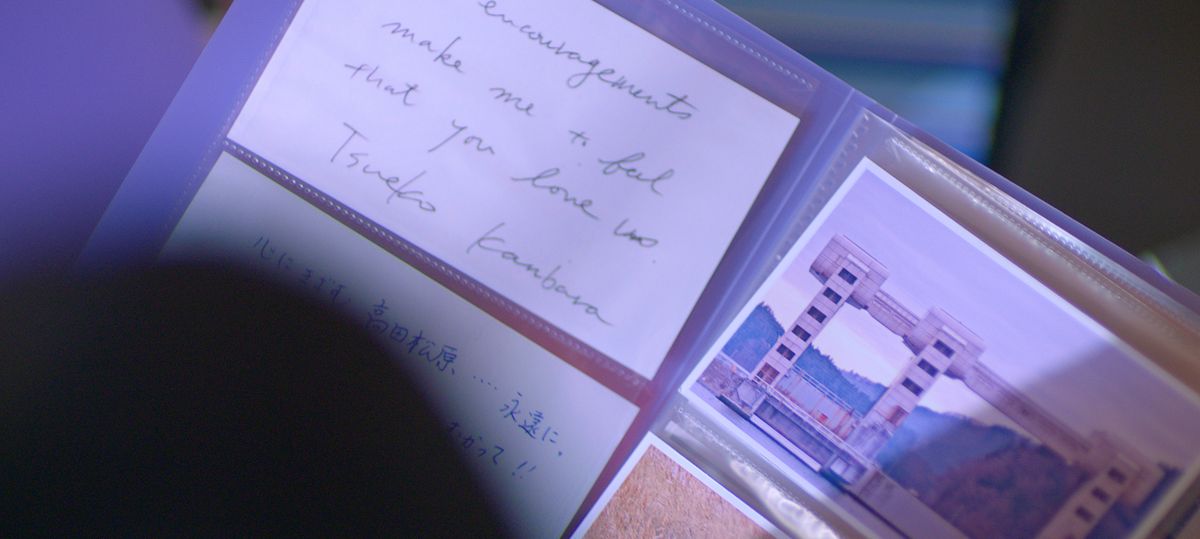 encouragements
make me to feel
that you love us.
Tsueko Kanbara
高田松原‥‥永遠に。